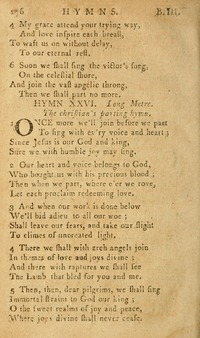 126 HYMNS. B. III.
4 My grace attend your trying way,
And love inspire each breast,
To waft us on without delay,
To our eternal rest.
6 Soon we shall sing the victor's song,
On the celestial shore,
And join the vast angelic throng,
Then we shall part no more.
HYMN XXVI. Long Metre.
The christian's parting hymn.
1 ONCE more we'll join before we part
To sing with ev'ry voice and heart;
Since Jesus is our God and king,
Sure we with humble joy may sing.
2 Our heart and voice belongs to God,
Who bought us with his precious blood;
Then when we part, where e'er we rove,
Let each proclaim redeeming love.
3 And when our work is done below
We'll bid adieu to all our woe;
Shall leave our fears, and take our flight
To climes of uncreated light.
4 There we shall with arch angels join
In themes of love and joys divine;
And there with raptures we shall see
The Lamb that bled for you and me.
5 Then, then, dear pilgrims, we shall sing
Immortal strains to God our king;
O the sweet realms of joy and peace,
Where joys divine shall never cease.